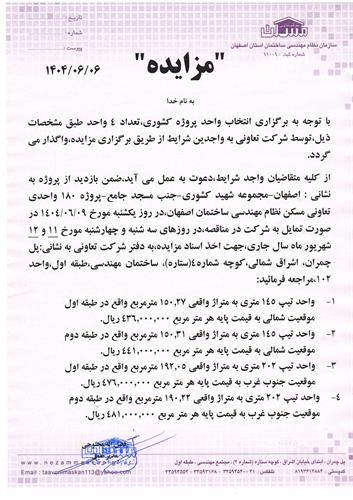 تاریخ :
شماره :
پیوست :
مسکن
سازمان نظام مهندسی ساختمان استان اصفهان
شماره ثبت : ۱۱۰۰۹
۱۴۰۴/۰۶/۰۶
"مزایده"
به نام خدا
با توجه به برگزاری انتخاب واحد پروژه کشوری،تعداد ۴ واحد طبق مشخصات
ذیل،توسط شرکت تعاونی به واجدین شرایط از طریق برگزاری مزایده،واگذار می
گردد.
از کلیه متقاضیان واجد شرایط،دعوت به عمل می آید،ضمن بازدید از پروژه به
نشانی : اصفهان-مجموعه شهید کشوری-جنب مسجد جامع-پروژه ۱۸۰ واحدی
تعاونی مسکن نظام مهندسی ساختمان اصفهان،در روز یکشنبه مورخ ۱۴۰۴/۰۶/۰۹ در
صورت تمایل به شرکت در مناقصه،در روزهای سه شنبه و چهارشنبه مورخ ۱۱ و ۱۲
شهریور ماه سال جاری،جهت اخذ اسناد مزایده،به دفتر شرکت تعاونی به نشانی:پل
چمران، اشراق شمالی،کوچه شماره۴(ستاره)، ساختمان مهندسی،طبقه اول،واحد
۱۰۲،مراجعه فرمائید:
۱- واحد تیپ ۱۴۵ متری به متراژ واقعی ۱۵۰,۲۷ مترمربع واقع در طبقه اول
موقعیت شمالی به قیمت پایه هر متر مربع ۴۳۶,۰۰۰,۰۰۰ ریال.
۲- واحد تیپ ۱۴۵ متری به متراژ واقعی ۱۵۰,۳۱ مترمربع واقع در طبقه دوم
موقعیت شمالی به قیمت پایه هر متر مربع ۴۴۱,۰۰۰,۰۰۰ ریال.
۳- واحد تیپ ۲۰۲ متری به متراژ واقعی ۱۹۲,۰۵ مترمربع واقع در طبقه اول
موقعیت جنوب غرب به قیمت پایه هر متر مربع ۴۷۶,۰۰۰,۰۰۰ ریال.
۴- واحد تیپ ۲۰۲ متری به متراژ واقعی ۱۹۰,۲۲ مترمربع واقع در طبقه دوم
موقعیت جنوب غرب به قیمت پایه هر متر مربع ۴۸۱,۰۰۰,۰۰۰ ریال.
پل چمران ، ابتدای خیابان اشراق، کوچه ستاره (شماره ۴)، مجتمع مهندسی ، طبقه اول
Email : taavonimaskan113@yahoo.com